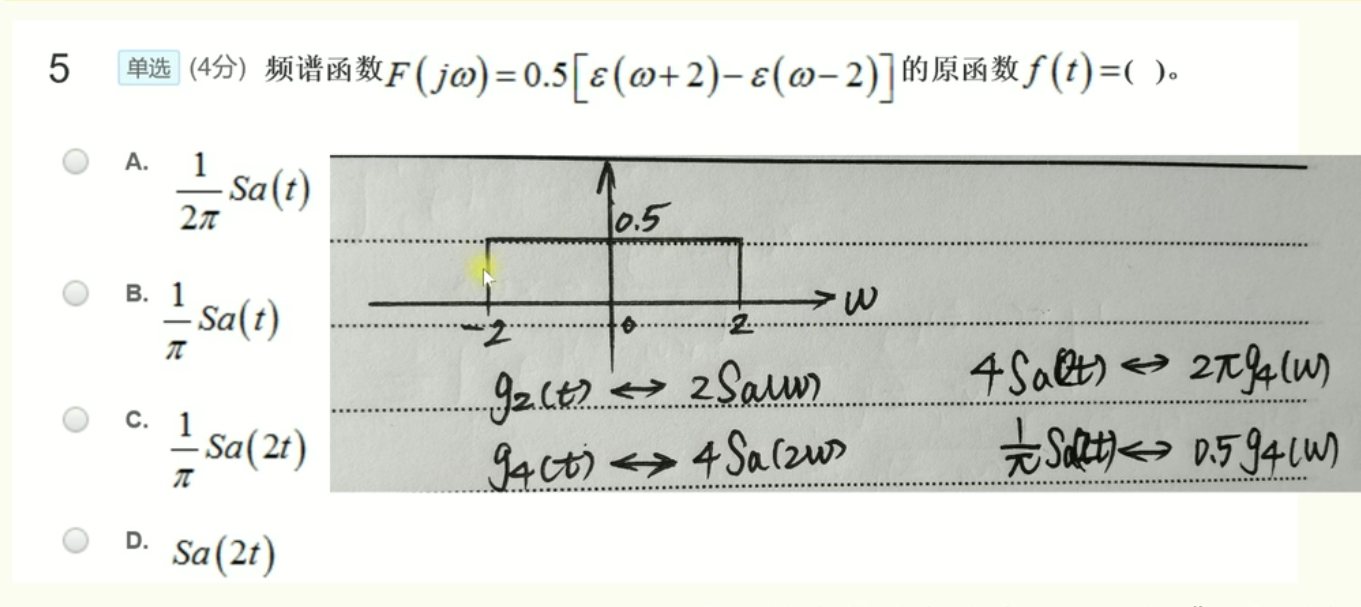 5 单选 (4分) 频谱函数F(jω)=0.5[ε(ω+2)−ε(ω−2)]的原函数f(t)=( )。
A. 1/2π Sa(t)
B. 1/π Sa(t)
C. 1/π Sa(2t)
D. Sa(2t)
0.5
ω
-2 0 2
g2(t) ↔ 2Sa(ω)
g4(t) ↔ 4Sa(2ω)
4Sa(2t) ↔ 2πg4(ω)
1/π Sa(2t) ↔ 0.5g4(ω)